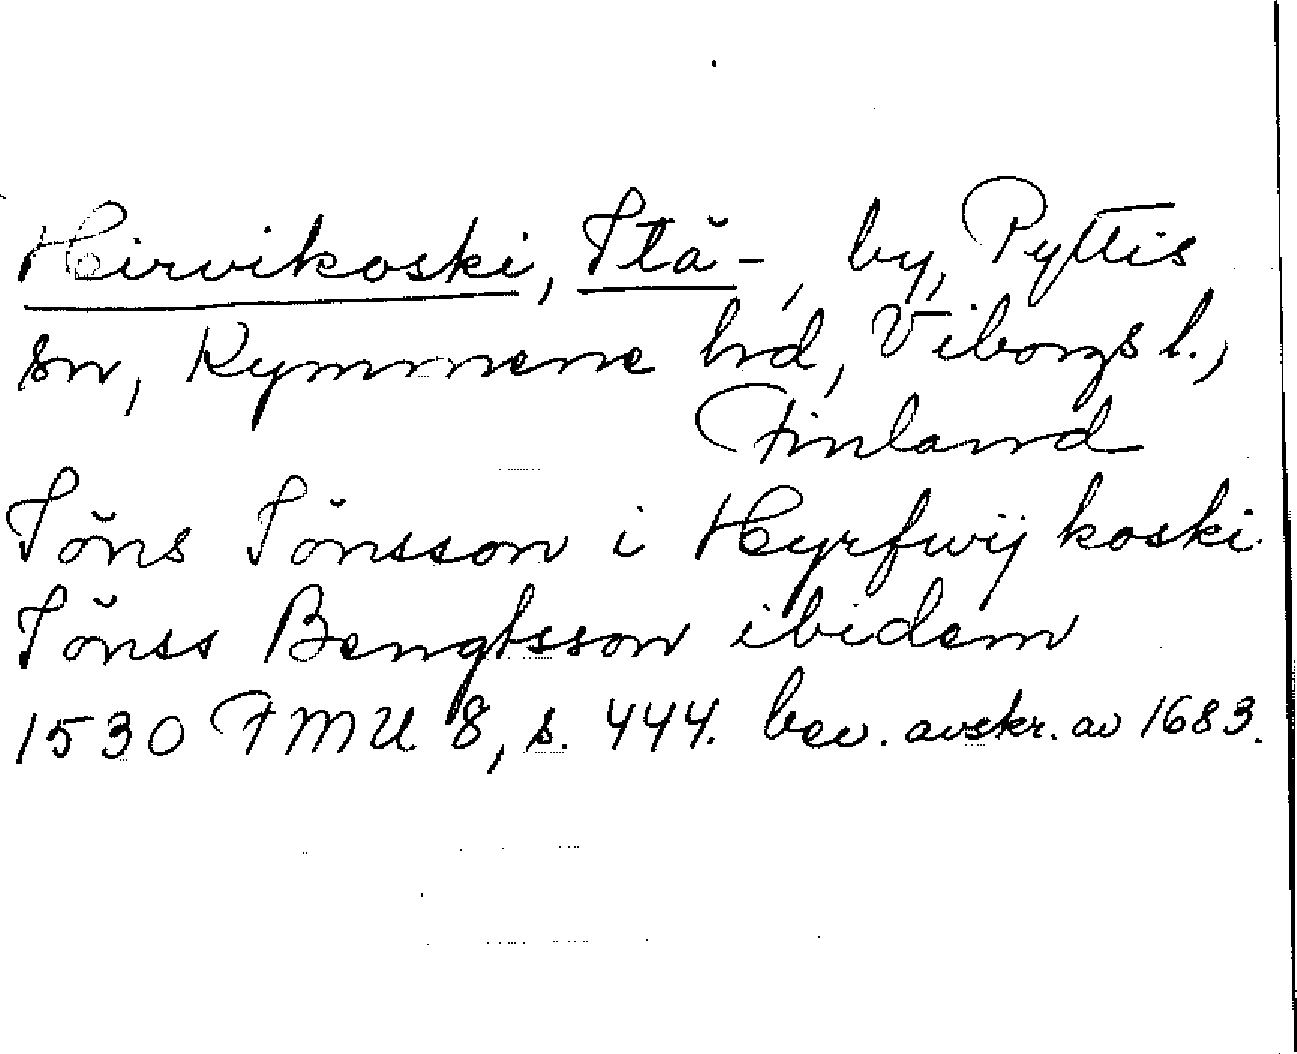 Hirvikoski, Itä-, by, Pyttis
sn, Kymmene hd, Viborgs l.,
Finland
Jöns Jönsson i Hyrfwij koski
Jönss Bengtsson ibidem
1530 FMU 8, s. 444. bev. avskr. av 1683.